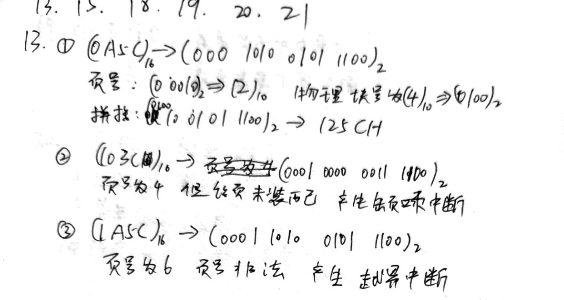 13. 15. 18. 19. 20. 21
13. ① (0A5C)₁₆→(000 1010 0101 1100)₂
页号: (00010)₂⇒(2)₁₀ 物理块号为(4)₁₀⇒(0100)₂
拼接: 10 0101 1100)₂ → 125CH
② (103C)₁₆→ (0001 0000 0011 1100)₂
页号为4 但该页未装内已 产生缺页中断
③ (1A5C)₁₆ → (0001 1010 0101 1100)₂
页号为6 页号非法 产生 越界中断